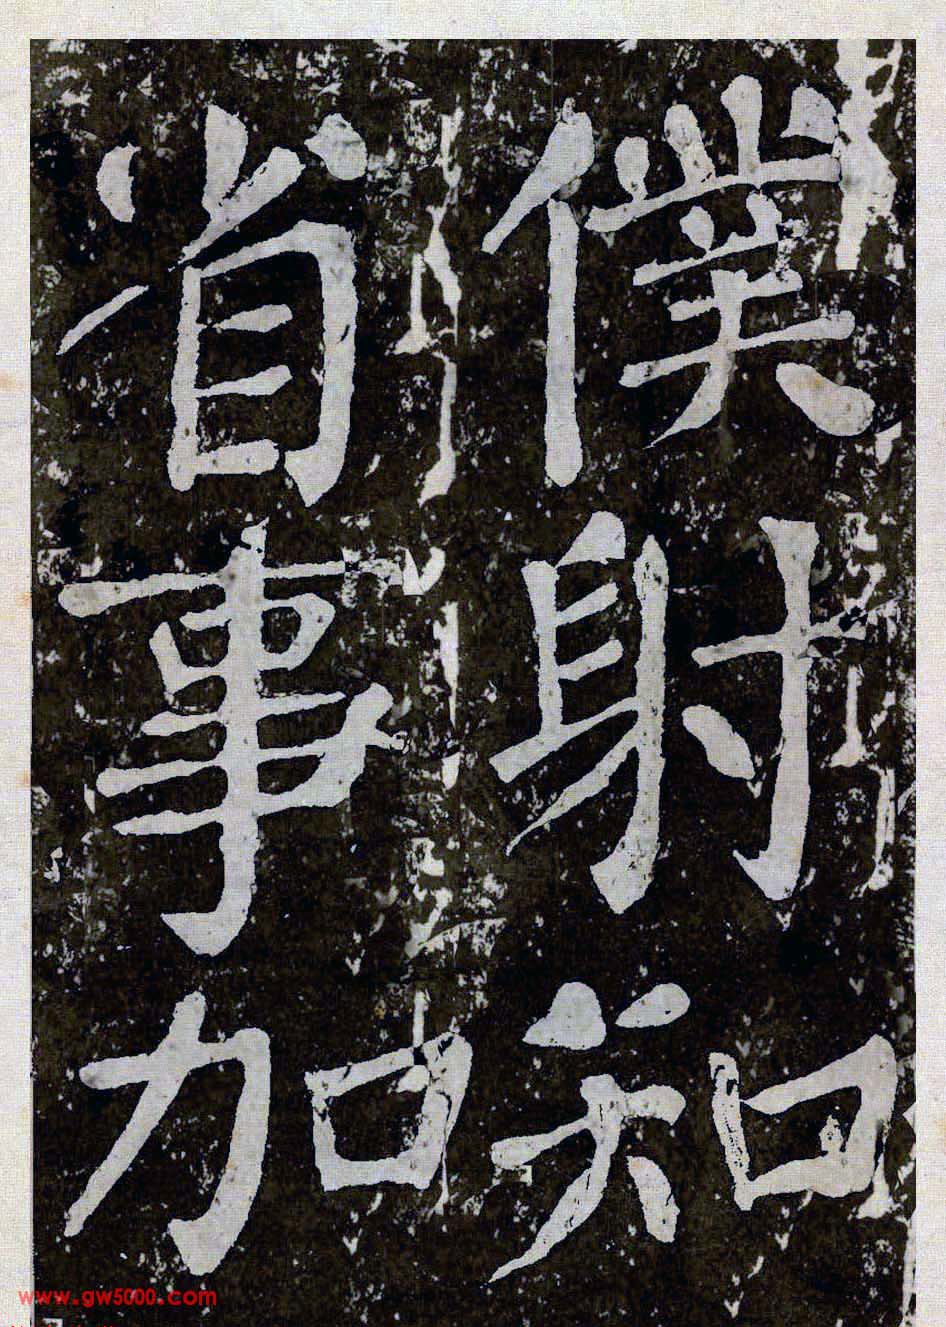 僕射知
省事加
www.gw5000.com